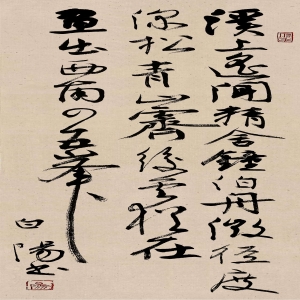 溪上遙聞精舍鐘泊舟微徑度
深松青山霽後雲猶在
畫出西南四五峯
白陽書